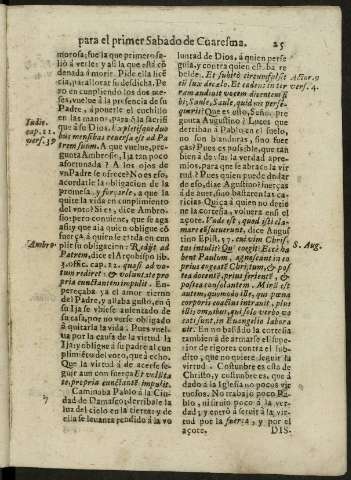 para el primer Sabado de Cuaresma. 25
morosa; fue la que primero se-
lió á verle: y assi la que está cō-
denada á morir. Pide ella licē-
cia, para llorar su desdicha. Pe-
ro en cumpliendo los dos me-
ses, vuelve á la presencia de su
Padre, á ponerle el cuchillo
en las manos, para q̄ la sacrifi-
que á se Dios. Expletisque duo
bus mensibus reversa est ad Pa-
trem suum. A que vuelve, pre-
gunta Ambrosio, Ija tan poco
afortunada? A los ojos de
vn Padre se ofrece? No es eso,
acordarle la obligacion de la
promesa, y forçarle, a que la
quite la vida en cumplimiento
del voto? Si es, dice Ambro-
sio: pero consiente, que se aga
assi; y que aia quien obligue cō
fuerça á quien le tarda en cum
plir su obligacion: Redijt ad
Patrem, dice el Arçobispo lib.
3. offic. cap. 12. quasi ad vo-
tum rediret: & voluntate pro
pria cunctantem impulit. En-
tropeçaba ya el amor tierno
del Padre, y allaba gusto, en q̄
su Ija se vbiese ausentado de
su casa, por no verse obligado
á quitarla la vida. Pues vuel-
va por la causa de la virtud la
Ija: y obligue á su padre al cum
plimiēto del voto, que á echo.
Que la virtud á de acerse se-
guir aun con fuerça: Et volūta
te propria cunctantē impulit.
Caminaba Pablo á la Ciu-
dad de Damasco; derribale la
luz del cielo en la tierra: y de
ella se levanta rendido á la vo
luntad de Dios, á quien perse
guia, y contra quien est. ba re
belde. Et subitò circumfulsit
eū lux de cælo. Et cadens in ter
ram audivit vocem dicentem si
bi; Saule, Saule, quid me perse-
queris? Que es esto, Señor, pre
gunta Augustino? Luces que
derriban á Pablo en el suelo,
no son blanduras, sino fuer
ças? Pues es posible, que tan
bien á de vsar la verdad apre-
mios, para que se abrace la vir
tud? Pues quien puede dudar
de eso, dice Augustino? fuerças
á de aver, si no bastaren las ca-
ricias: Quiça á quien no detie
ne la cortesia, volverá en si el
açote. Vnde est, quod isti cla-
mare consueverunt, dice Augus
tino Epist. 50. cui vim Chris-
tus intulit? Qui coegit? Ecce ha
bent Paulum, agnoscant in eo
prius cogentē Christum, & pos
tea docentē, prius ferientē, &
postea consolantem. Mirū est
autem, quomodo ille, qui pœna
corporis coactus intravit, plus
illis omnibus, qui solo verbo vo
cati sunt, in Evangelio labora
vit. En no bastādo la cortesia
tambien á de armarse el supe-
rior de rigores contra el sub-
dito, que no quiere seguir la
virtud. Costumbre es esta de
Christo, y costumbre es, que á
dado á la Iglesia no pocos vir
tuosos. No trabajò poco Pa-
blo, ni sirviò poco á la ver-
dad; y entrò á servir á la vir-
tud por la fuerça, y por el
açote.
DIS-
Iudic.
cap. 11.
vers. 39
Ambro.
Actor. 9
vers. 4.
S. Aug.